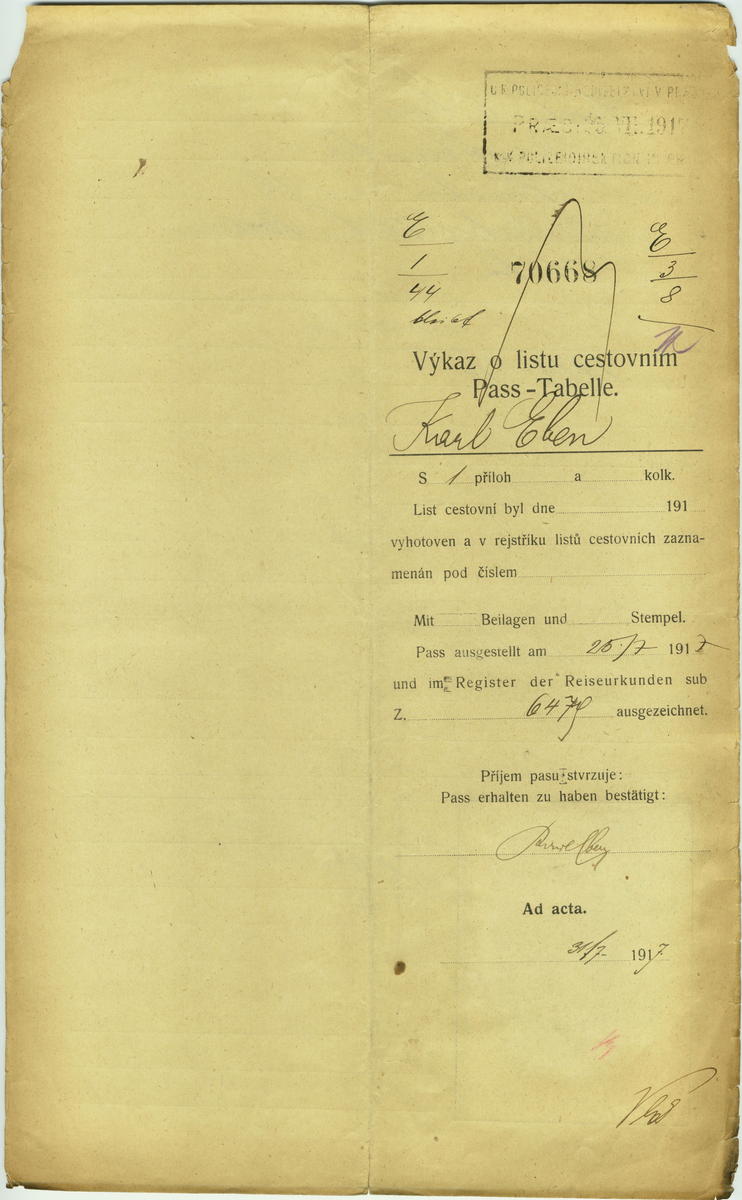 PRAES. VII. 1917
E E
1 70668 3
44 8
Výkaz o listu cestovním
Pass-Tabelle.
Karl Eben
S 1 příloh a kolk.
List cestovní byl dne 191
vyhotoven a v rejstříku listů cestovních zazna-
menán pod číslem
Mit Beilagen und Stempel.
Pass ausgestellt am 25/7 1917
und im Register der Reiseurkunden sub
Z. 647 ausgezeichnet.
Příjem pasu stvrzuje:
Pass erhalten zu haben bestätigt:
Ad acta.
31/7 1917.